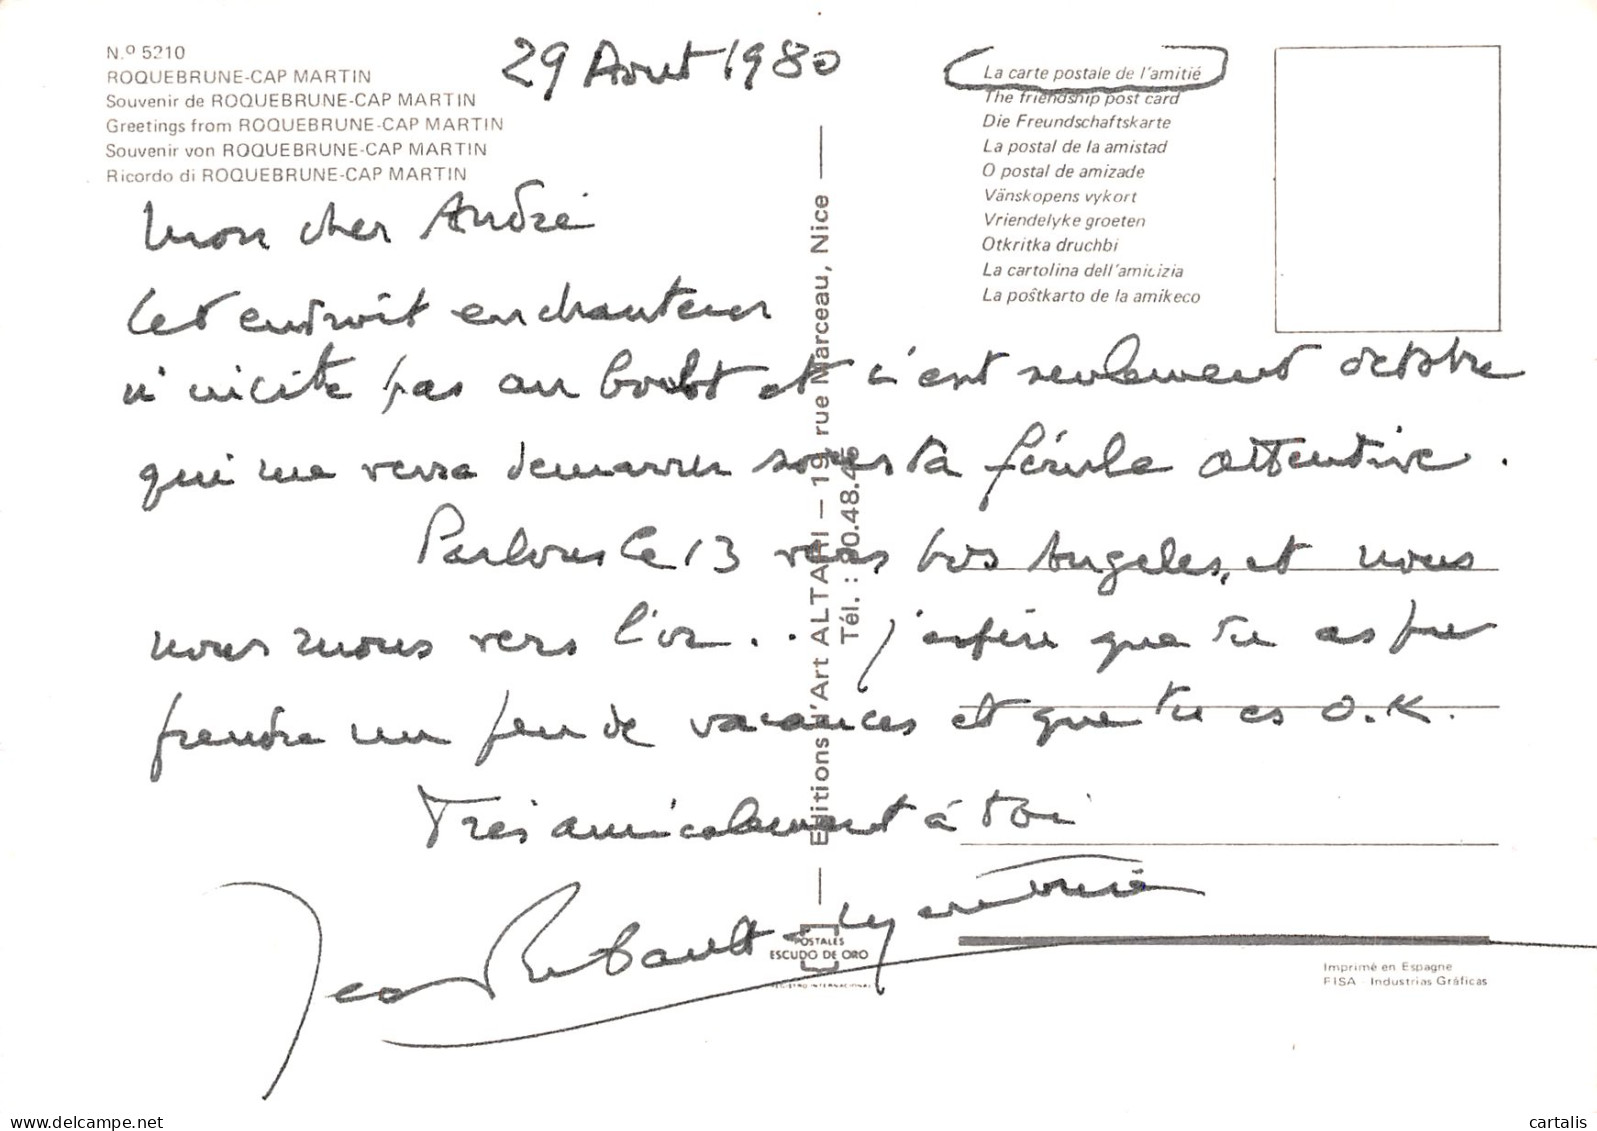 N.º 5210
ROQUEBRUNE-CAP MARTIN
Souvenir de ROQUEBRUNE-CAP MARTIN
Greetings from ROQUEBRUNE-CAP MARTIN
Souvenir von ROQUEBRUNE-CAP MARTIN
Ricordo di ROQUEBRUNE-CAP MARTIN
29 Aout 1980
La carte postale de l'amitié
The friendship post card
Die Freundschaftskarte
La postal de la amistad
O postal de amizade
Vänskopens vykort
Vriendelyke groeten
Otkritka druchbi
La cartolina dell'amicizia
La poŝtkarto de la amikeco
Mon cher André
Cet endroit enchanteur
n'incite pas au boulot et c'est seulement octobre
qui me verra demarrer sous ta férule attentive.
Partons le 13 vers Los Angeles, et nous
nous vers l'or.. j'espère que tu as pu
prendre un peu de vacances et que tu es O.K.
Très amicalement à toi
Jean
Editions d'Art ALTARI — 19, rue Marceau, Nice
Tél. : 80.48.
POSTALES
ESCUDO DE ORO
REGISTRO INTERNACIONAL
Imprimé en Espagne
FISA - Industrias Gráficas
cartalis